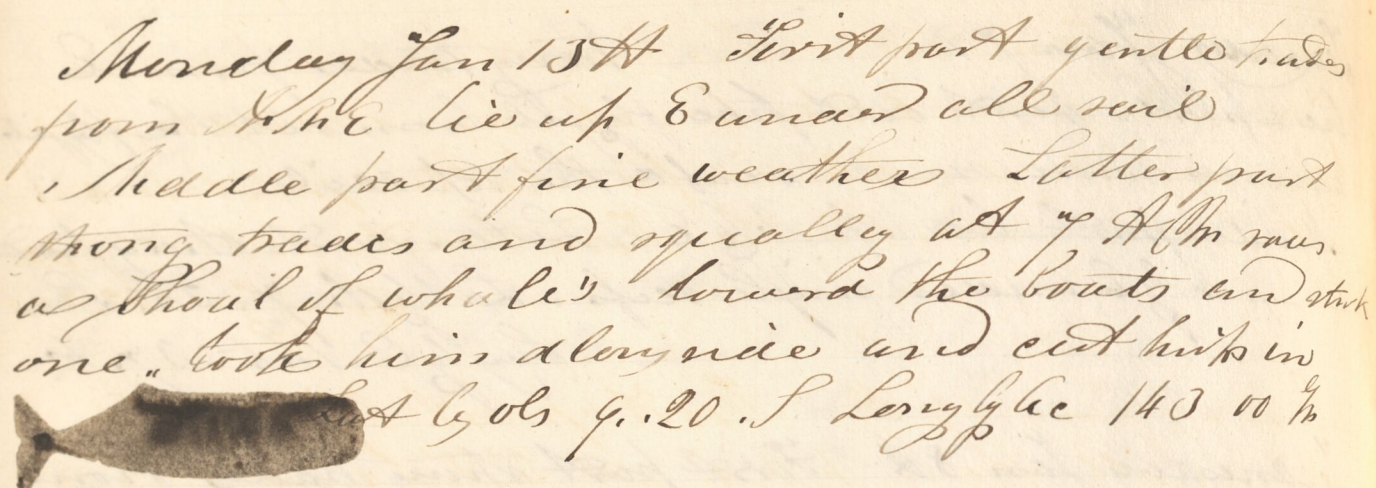 Monday Jan 13th First part gentle trades
from N.N.E lie up E under all sail
Middle part fine weather Latter part
strong trades and squally at 7 A M saw
a Shoal of whale's lowerd the boats and struk
one „ took him alongside and cut him in
Lat by obs 9..20 .S Long by Chr 143 00 W